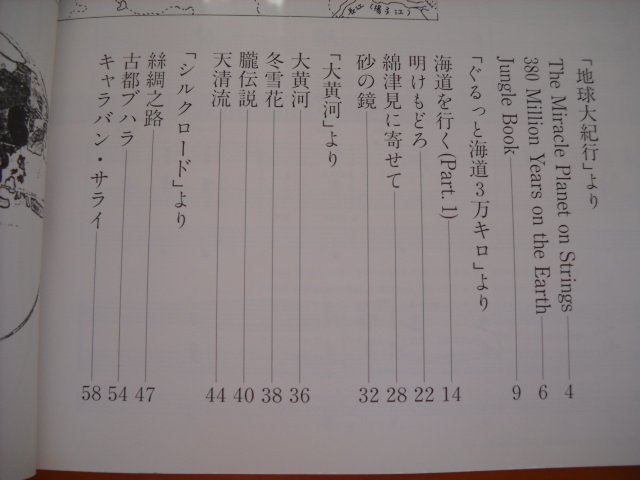 「地球大紀行」より
The Miracle Planet on Strings 4
380 Million Years on the Earth 6
Jungle Book 9
「ぐるっと海道3万キロ」より
海道を行く(Part. 1) 14
明けもどろ 22
綿津見に寄せて 28
砂の鏡 32
「大黄河」より
大黄河 36
冬雪花 38
朧伝説 40
天清流 44
「シルクロード」より
絲綢之路 47
古都ブハラ 54
キャラバン・サライ 58